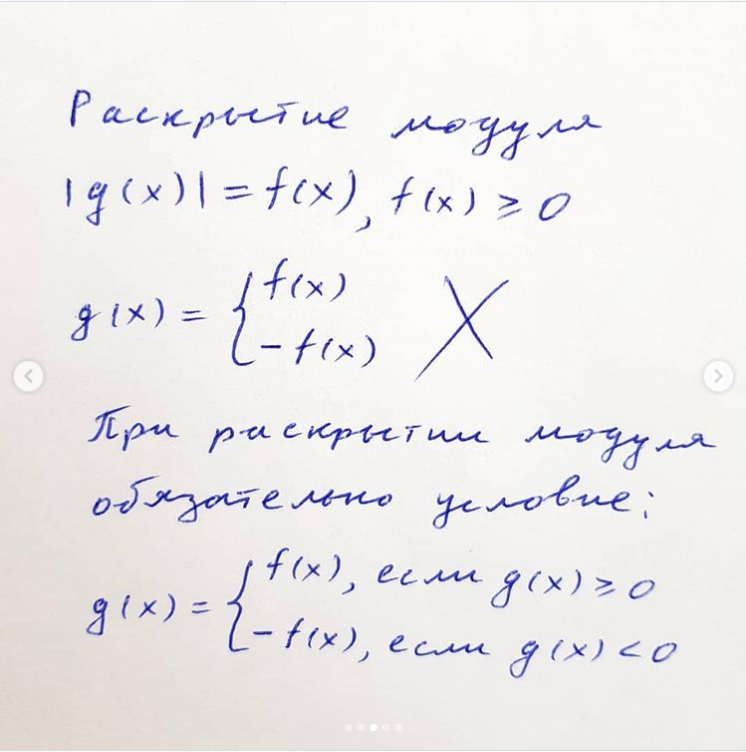 Раскрытие модуля
|g(x)| = f(x), f(x) ≥ 0
g(x) = { f(x)
- f(x)
При раскрытии модуля
обязательно условие:
g(x) = { f(x), если g(x) ≥ 0
- f(x), если g(x) < 0